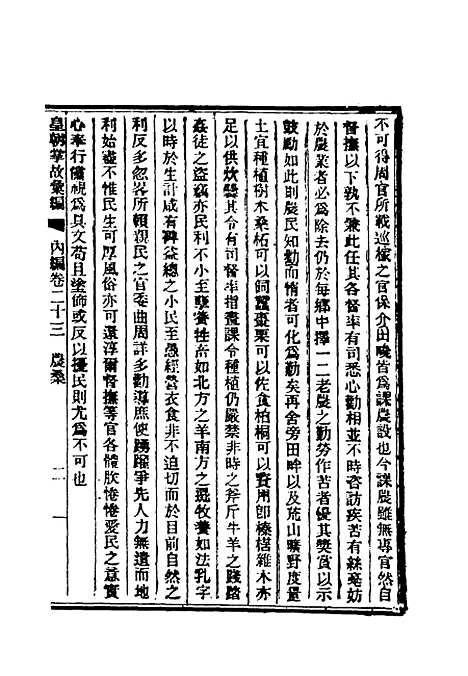 不可得周官所載巡稼之官保介田畯皆爲課農設也今課農雖無專官然自
督撫以下孰不兼此任其各督率有司悉心勸相並不時咨訪疾苦有絲毫妨
於農業者必爲除去仍於每鄉中擇一二老農之勤勞作苦者優其獎賞以示
鼓勵如此則農民知勸而惰者可化爲勤矣再舍旁田畔以及荒山曠野度量
土宜種植樹木桑柘可以飼蠶棗栗可以佐食柏桐可以資用卽榛楛雜木亦
足以供炊爨其令有司督率指畫課令種植仍嚴禁非時之斧斤牛羊之踐踏
姦徒之盜竊亦民利不小至孳養牲畜如北方之羊南方之彘牧養如法乳字
以時於生計咸有裨益總之小民至愚經營衣食非不迫切而於目前自然之
利反多忽畧所賴親民之官委曲周詳多勸導庶使踴躍爭先人力無遺而地
利始盡不惟民生可厚風俗亦可還淳爾督撫等官各體朕惓惓愛民之意實
心奉行儻視爲具文苟且塗飾或反以擾民則尤爲不可也
皇朝掌故彙編 內編卷二十三 農桑 二